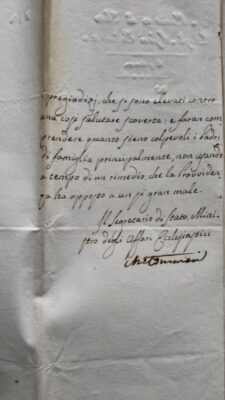 i pregiudizj, che si sono elevati contro
una così salutare scoverta: e faran com
prendere quanto sieno colpevoli i Padri
di famiglia principalmente, non usando
a tempo di un rimedio, che la Provviden
za ha opposto a un sì gran male.
Il Segretario di Stato, Mini
stro degli Affari Ecclesiastici